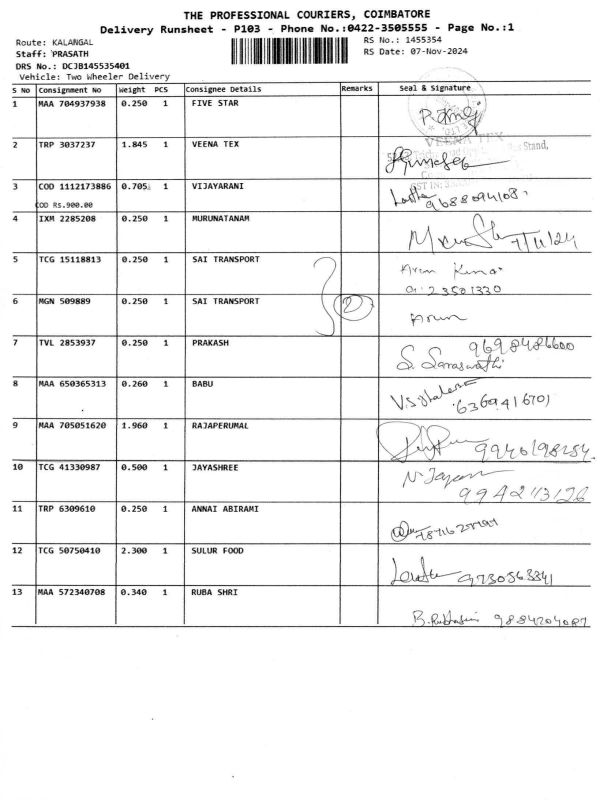 THE PROFESSIONAL COURIERS, COIMBATORE
Delivery Runsheet - P103 - Phone No.:0422-3505555 - Page No.:1
Route: KALANGAL
RS No.: 1455354
Staff: PRASATH
RS Date: 07-Nov-2024
DRS No.: DCJB145535401
Vehicle: Two Wheeler Delivery
S No Consignment No Weight PCS Consignee Details Remarks Seal & Signature
1 MAA 704937938 0.250 1 FIVE STAR
VEENA TEX
2 TRP 3037237 1.845 1 VEENA TEX
Stand,
3 COD 1112173886 0.705 1 VIJAYARANI
COD Rs.900.00
9688094108
4 IXM 2285208 0.250 1 MURUNATANAM
7/11/24
5 TCG 15118813 0.250 1 SAI TRANSPORT
Arun Kumar
6 MGN 509889 0.250 1 SAI TRANSPORT 2
Arun
7 TVL 2853937 0.250 1 PRAKASH 9698486600
S. Saraswathi
8 MAA 650365313 0.260 1 BABU
6369416701
9 MAA 705051620 1.960 1 RAJAPERUMAL
9940198254
10 TCG 41330987 0.500 1 JAYASHREE
11 TRP 6309610 0.250 1 ANNAI ABIRAMI
12 TCG 50750410 2.300 1 SULUR FOOD
13 MAA 572340708 0.340 1 RUBA SHRI
9884204087